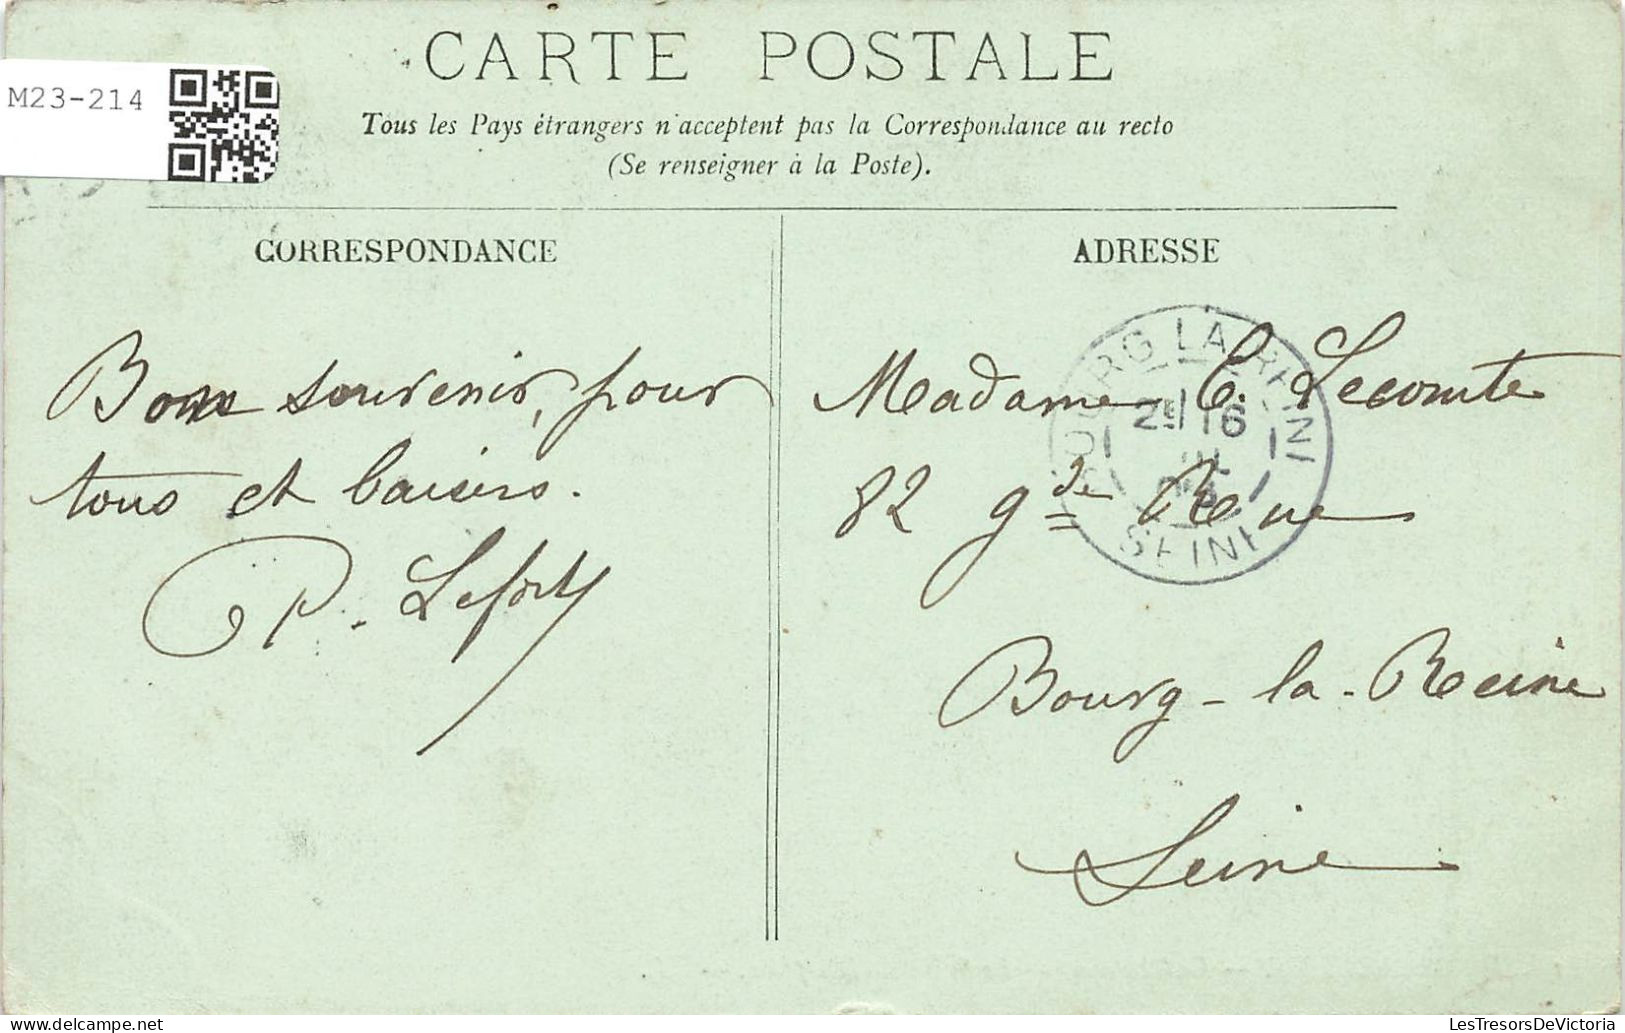 M23-214
CARTE POSTALE
Tous les Pays étrangers n'acceptent pas la Correspondance au recto
(Se renseigner à la Poste).
CORRESPONDANCE
Bon souvenir, pour
tous et baisers.
P. Lefort
ADRESSE
Madame C. Lecomte
82 gde Rue
Bourg-la-Reine
Seine
BOURG LA REINE
SEINE
LesTresorsDeVictoria